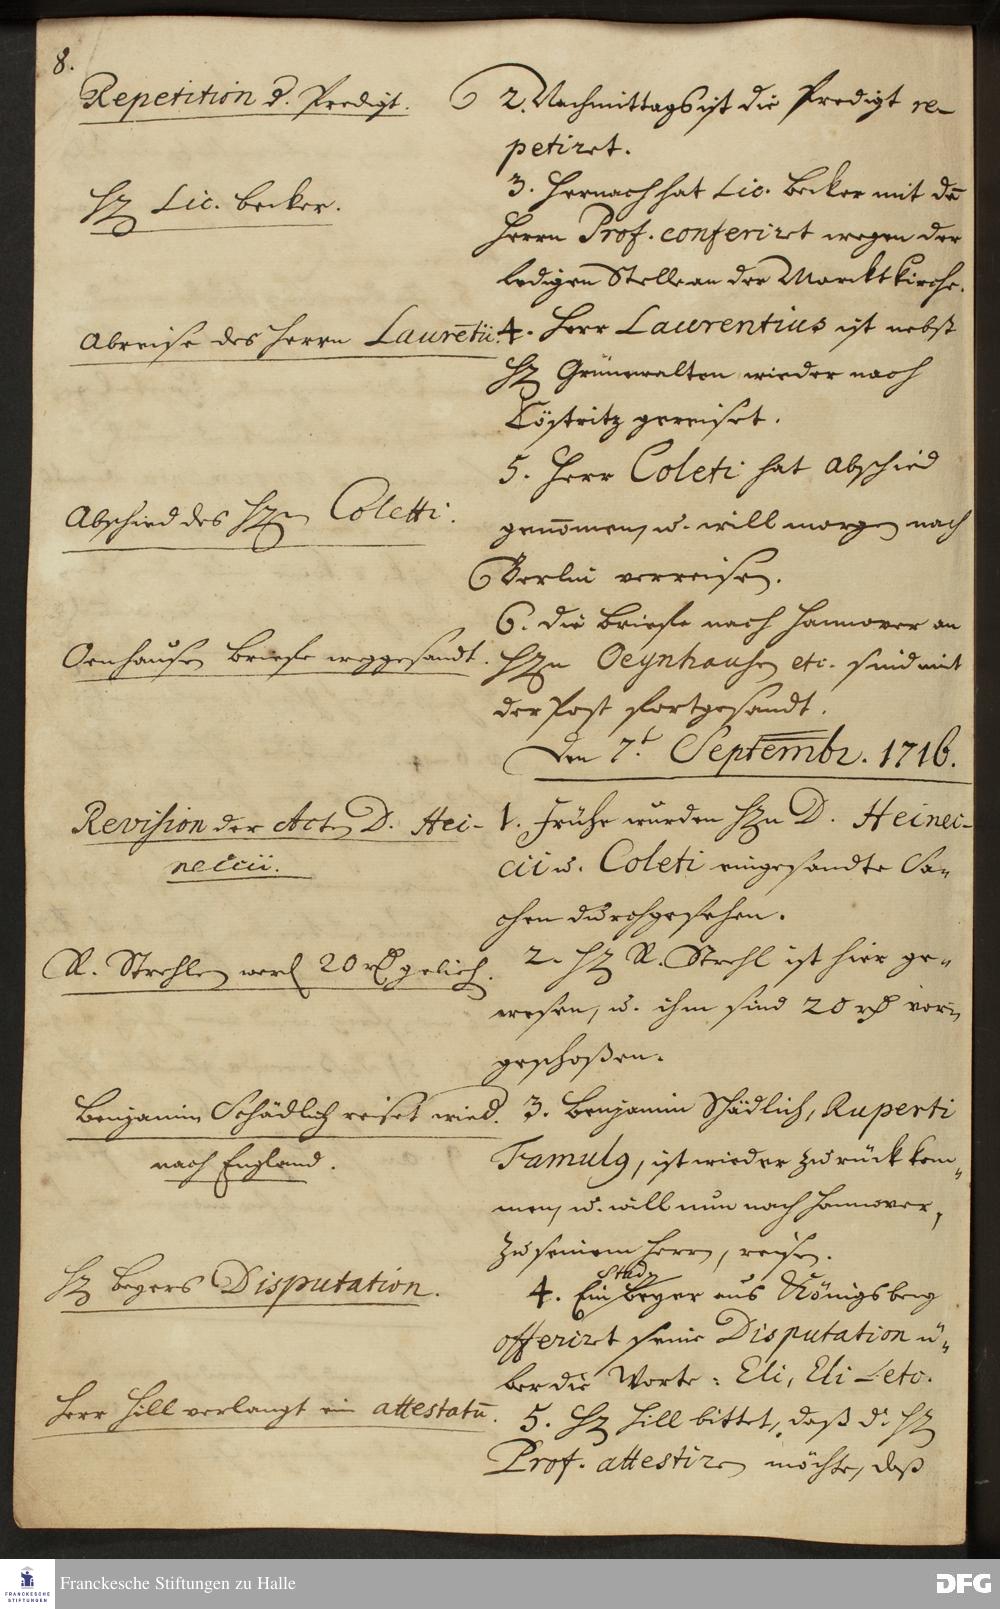 8.
Repetition d. Predigt.
2. Nachmittags ist die Predigt re-
petiret.
Hr Lic. Becker.
3. Hernach hat Lic. Becker mit dē
Herrn Prof. conferiret wegen der
ledigen Stelle an der Marcktkirche.
Abreise des Herrn Lauretii.
4. Herr Laurentius ist nebst
Hr Grünewalten wieder nach
Köstritz gereiset.
Abschied des Hrn Coletti.
5. Herr Coleti hat Abschied
genom̄en, u. will morgen nach
Berlin verreisen.
Oenhausen Briefe weggesandt.
6. Die Briefe nach Hannover an
Hrn Oeynhausen etc. sind mit
der Post fortgesandt.
Den 7t. Septembr. 1716.
Revision der Acten D. Hei-
neccii.
1. Frühe wurden Hrn D. Heinec-
cii u. Coleti eingesandte Sa-
chen durchgesehen.
R. Strehlen werd 20 rthl. gelieh.
2. Hr R. Strehl ist hier ge-
wesen, u. ihm sind 20 rthl vor-
geschoßen.
Benjamin Schädlich reiset wied.
nach England.
3. Benjamin Schädlich, Ruperti
Famulus, ist wieder zurück kom-
men, u. will nun nach Hannover,
zu seinem Herrn, reisen.
Hr Beyers Disputation.
Stud.
4. Ein Beyer aus Königsberg
offeriret seine Disputation ü-
ber die Worte: Eli, Eli etc.
Herr Hill verlangt ein attestatū.
5. Hr Hill bittet, daß d. Hr
Prof. attestiren möchte, daß
FRANCKESCHE
STIFTUNGEN
Franckesche Stiftungen zu Halle
DFG